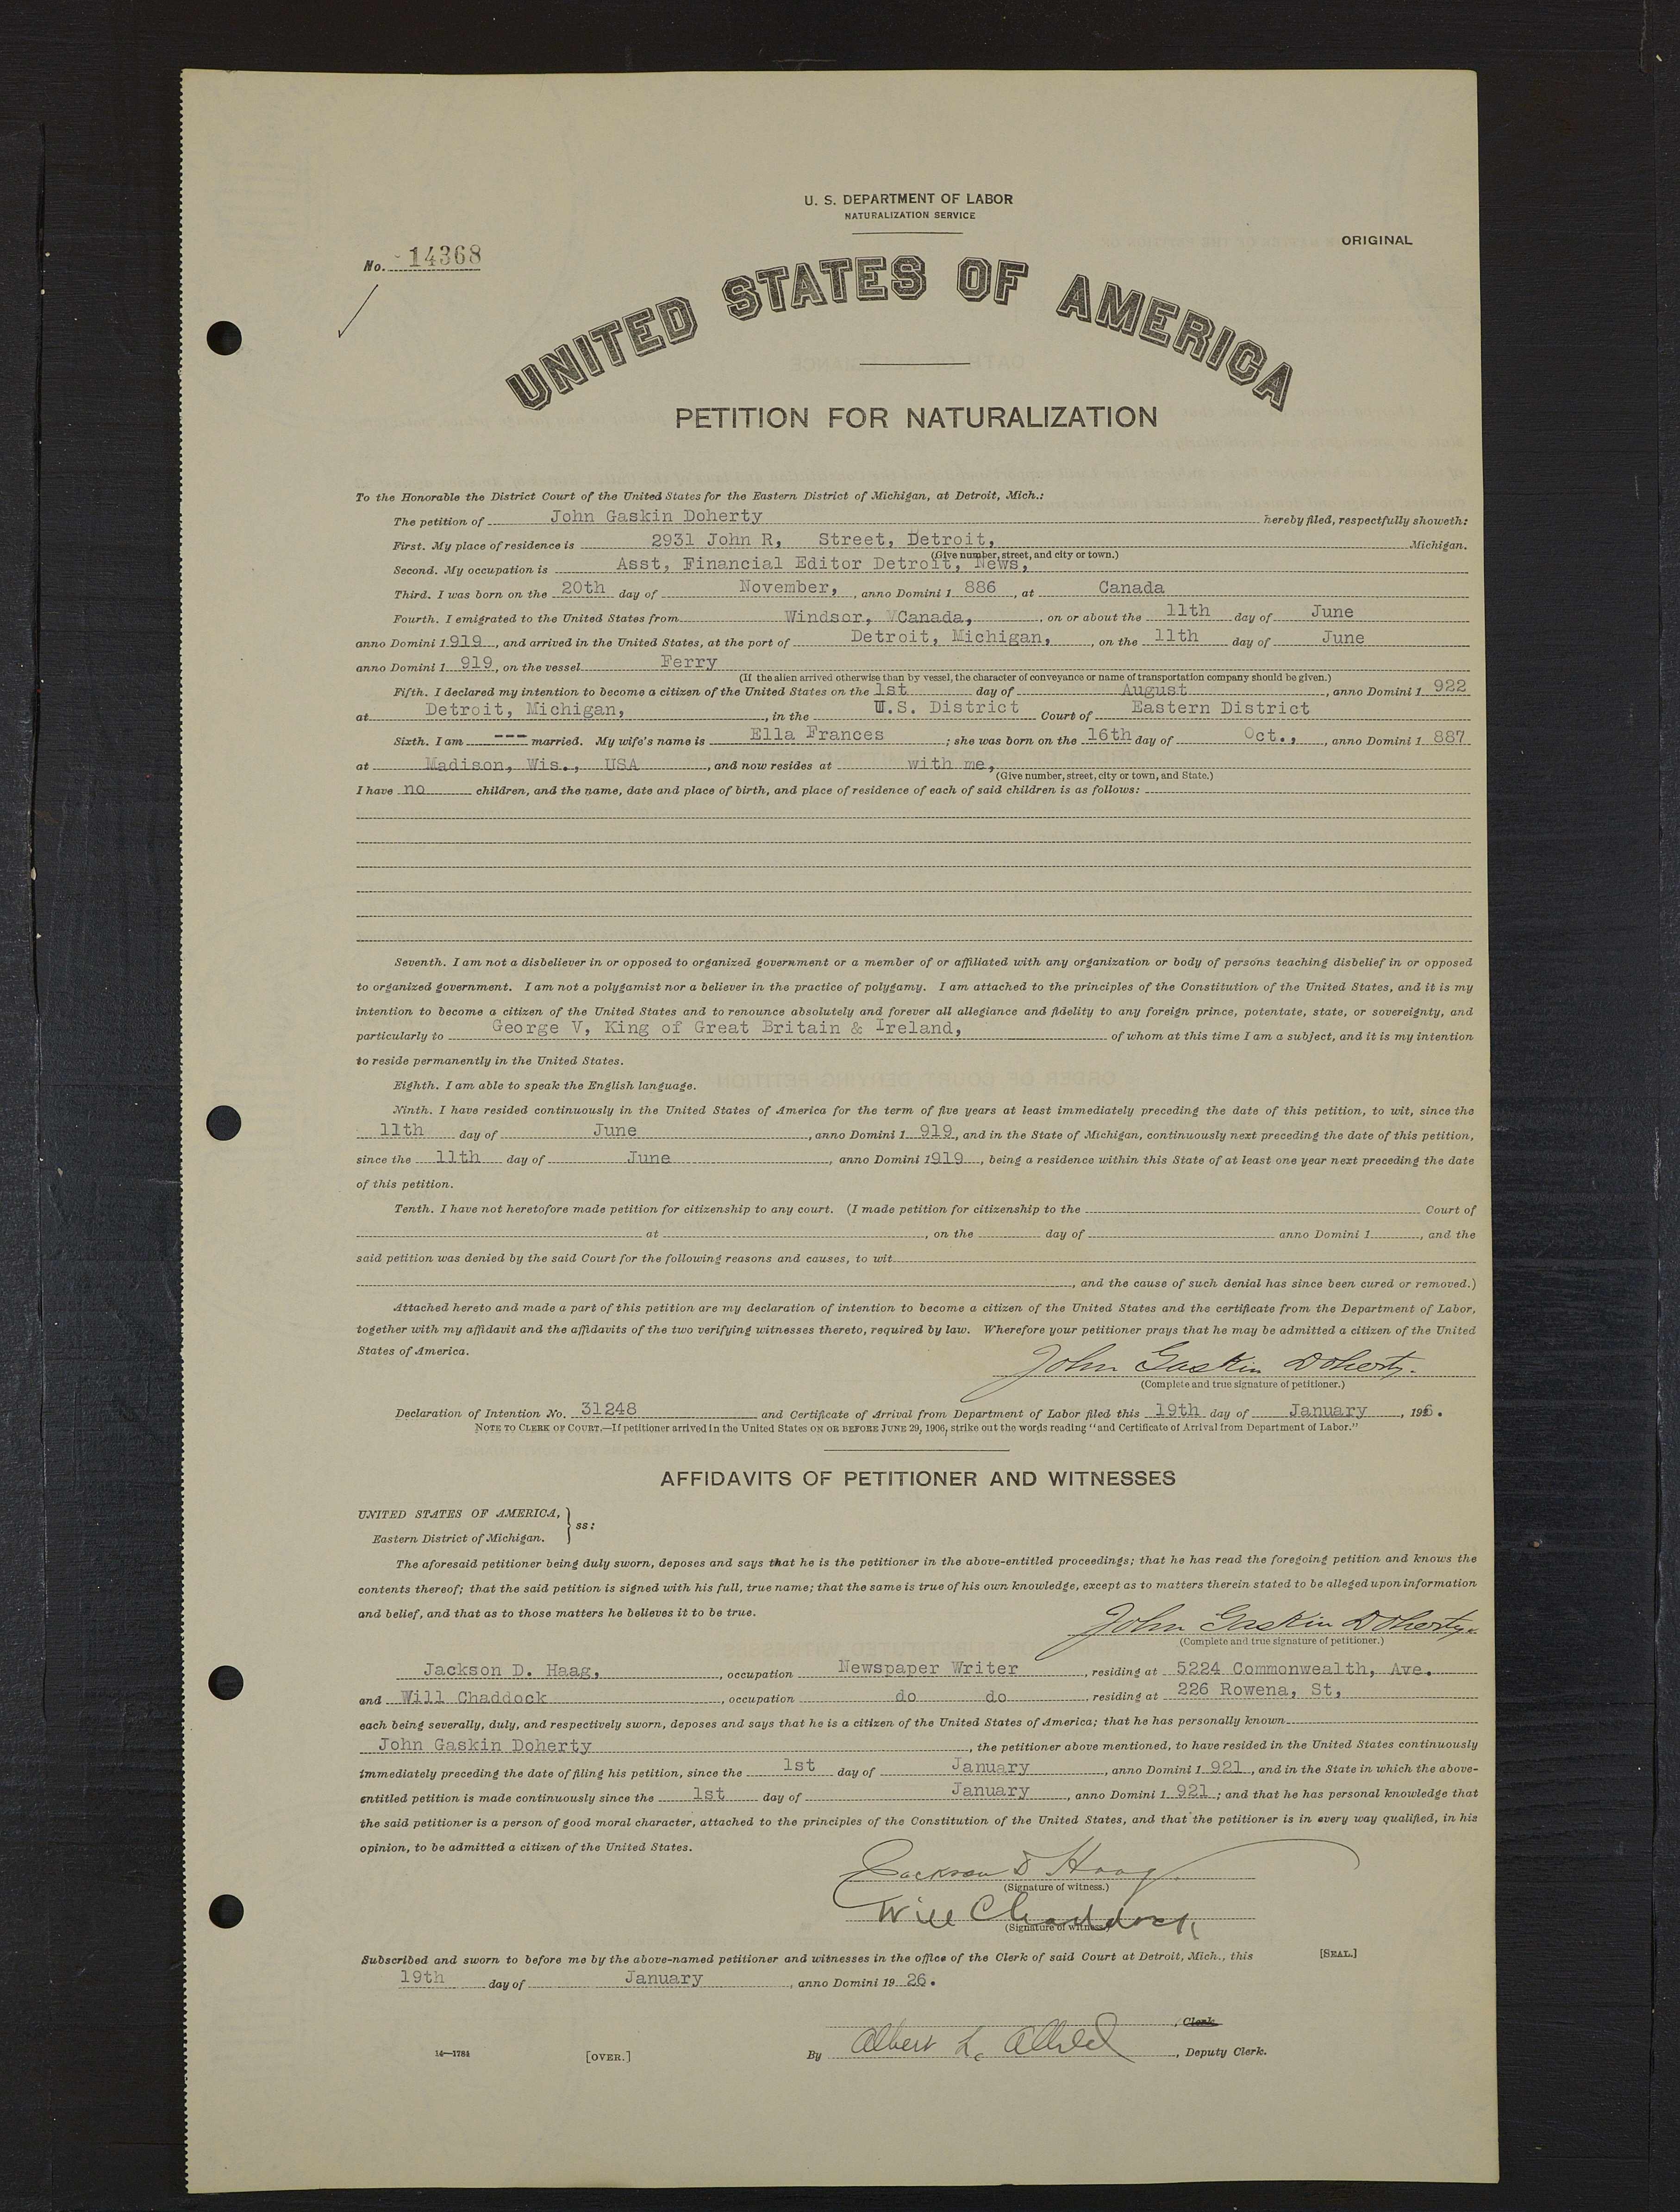 U. S. DEPARTMENT OF LABOR
NATURALIZATION SERVICE
ORIGINAL
No. 14368
UNITED STATES OF AMERICA
PETITION FOR NATURALIZATION
To the Honorable the District Court of the United States for the Eastern District of Michigan, at Detroit, Mich.:
The petition of John Gaskin Doherty hereby filed, respectfully showeth:
First. My place of residence is 2931 John R, Street, Detroit, Michigan.
(Give number, street, and city or town.)
Second. My occupation is Asst, Financial Editor Detroit, News,
Third. I was born on the 20th day of November, , anno Domini 1 886 , at Canada
Fourth. I emigrated to the United States from Windsor, Canada, , on or about the 11th day of June
anno Domini 1 919 , and arrived in the United States, at the port of Detroit, Michigan, , on the 11th day of June
anno Domini 1 919 , on the vessel Ferry
(If the alien arrived otherwise than by vessel, the character of conveyance or name of transportation company should be given.)
Fifth. I declared my intention to become a citizen of the United States on the 1st day of August , anno Domini 1 922
at Detroit, Michigan, , in the U.S. District Court of Eastern District
Sixth. I am --- married. My wife's name is Ella Frances ; she was born on the 16th day of Oct., , anno Domini 1 887
at Madison, Wis., USA , and now resides at with me,
(Give number, street, city or town, and State.)
I have no children, and the name, date and place of birth, and place of residence of each of said children is as follows:
Seventh. I am not a disbeliever in or opposed to organized government or a member of or affiliated with any organization or body of persons teaching disbelief in or opposed
to organized government. I am not a polygamist nor a believer in the practice of polygamy. I am attached to the principles of the Constitution of the United States, and it is my
intention to become a citizen of the United States and to renounce absolutely and forever all allegiance and fidelity to any foreign prince, potentate, state, or sovereignty, and
particularly to George V, King of Great Britain & Ireland, of whom at this time I am a subject, and it is my intention
to reside permanently in the United States.
Eighth. I am able to speak the English language.
Ninth. I have resided continuously in the United States of America for the term of five years at least immediately preceding the date of this petition, to wit, since the
11th day of June , anno Domini 1 919 , and in the State of Michigan, continuously next preceding the date of this petition,
since the 11th day of June , anno Domini 1919 , being a residence within this State of at least one year next preceding the date
of this petition.
Tenth. I have not heretofore made petition for citizenship to any court. (I made petition for citizenship to the Court of
at , on the day of anno Domini 1 , and the
said petition was denied by the said Court for the following reasons and causes, to wit
, and the cause of such denial has since been cured or removed.)
Attached hereto and made a part of this petition are my declaration of intention to become a citizen of the United States and the certificate from the Department of Labor,
together with my affidavit and the affidavits of the two verifying witnesses thereto, required by law. Wherefore your petitioner prays that he may be admitted a citizen of the United
States of America.
John Gaskin Doherty.
(Complete and true signature of petitioner.)
Declaration of Intention No. 31248 and Certificate of Arrival from Department of Labor filed this 19th day of January , 1926.
NOTE TO CLERK OF COURT.—If petitioner arrived in the United States ON OR BEFORE JUNE 29, 1906, strike out the words reading "and Certificate of Arrival from Department of Labor."
AFFIDAVITS OF PETITIONER AND WITNESSES
UNITED STATES OF AMERICA, } ss:
Eastern District of Michigan.
The aforesaid petitioner being duly sworn, deposes and says that he is the petitioner in the above-entitled proceedings; that he has read the foregoing petition and knows the
contents thereof; that the said petition is signed with his full, true name; that the same is true of his own knowledge, except as to matters therein stated to be alleged upon information
and belief, and that as to those matters he believes it to be true.
John Gaskin Doherty.
(Complete and true signature of petitioner.)
Jackson D. Haag, , occupation Newspaper Writer , residing at 5224 Commonwealth, Ave.
and Will Chaddock , occupation do do , residing at 226 Rowena, St,
each being severally, duly, and respectively sworn, deposes and says that he is a citizen of the United States of America; that he has personally known
John Gaskin Doherty , the petitioner above mentioned, to have resided in the United States continuously
immediately preceding the date of filing his petition, since the 1st day of January , anno Domini 1 921 , and in the State in which the above-
entitled petition is made continuously since the 1st day of January , anno Domini 1 921 ; and that he has personal knowledge that
the said petitioner is a person of good moral character, attached to the principles of the Constitution of the United States, and that the petitioner is in every way qualified, in his
opinion, to be admitted a citizen of the United States.
Jackson D Haag.
(Signature of witness.)
Will Chaddock
(Signature of witness.)
Subscribed and sworn to before me by the above-named petitioner and witnesses in the office of the Clerk of said Court at Detroit, Mich., this [SEAL.]
19th day of January , anno Domini 19 26.
, Clerk.
14—1784 [OVER.] By Albert L. , Deputy Clerk.